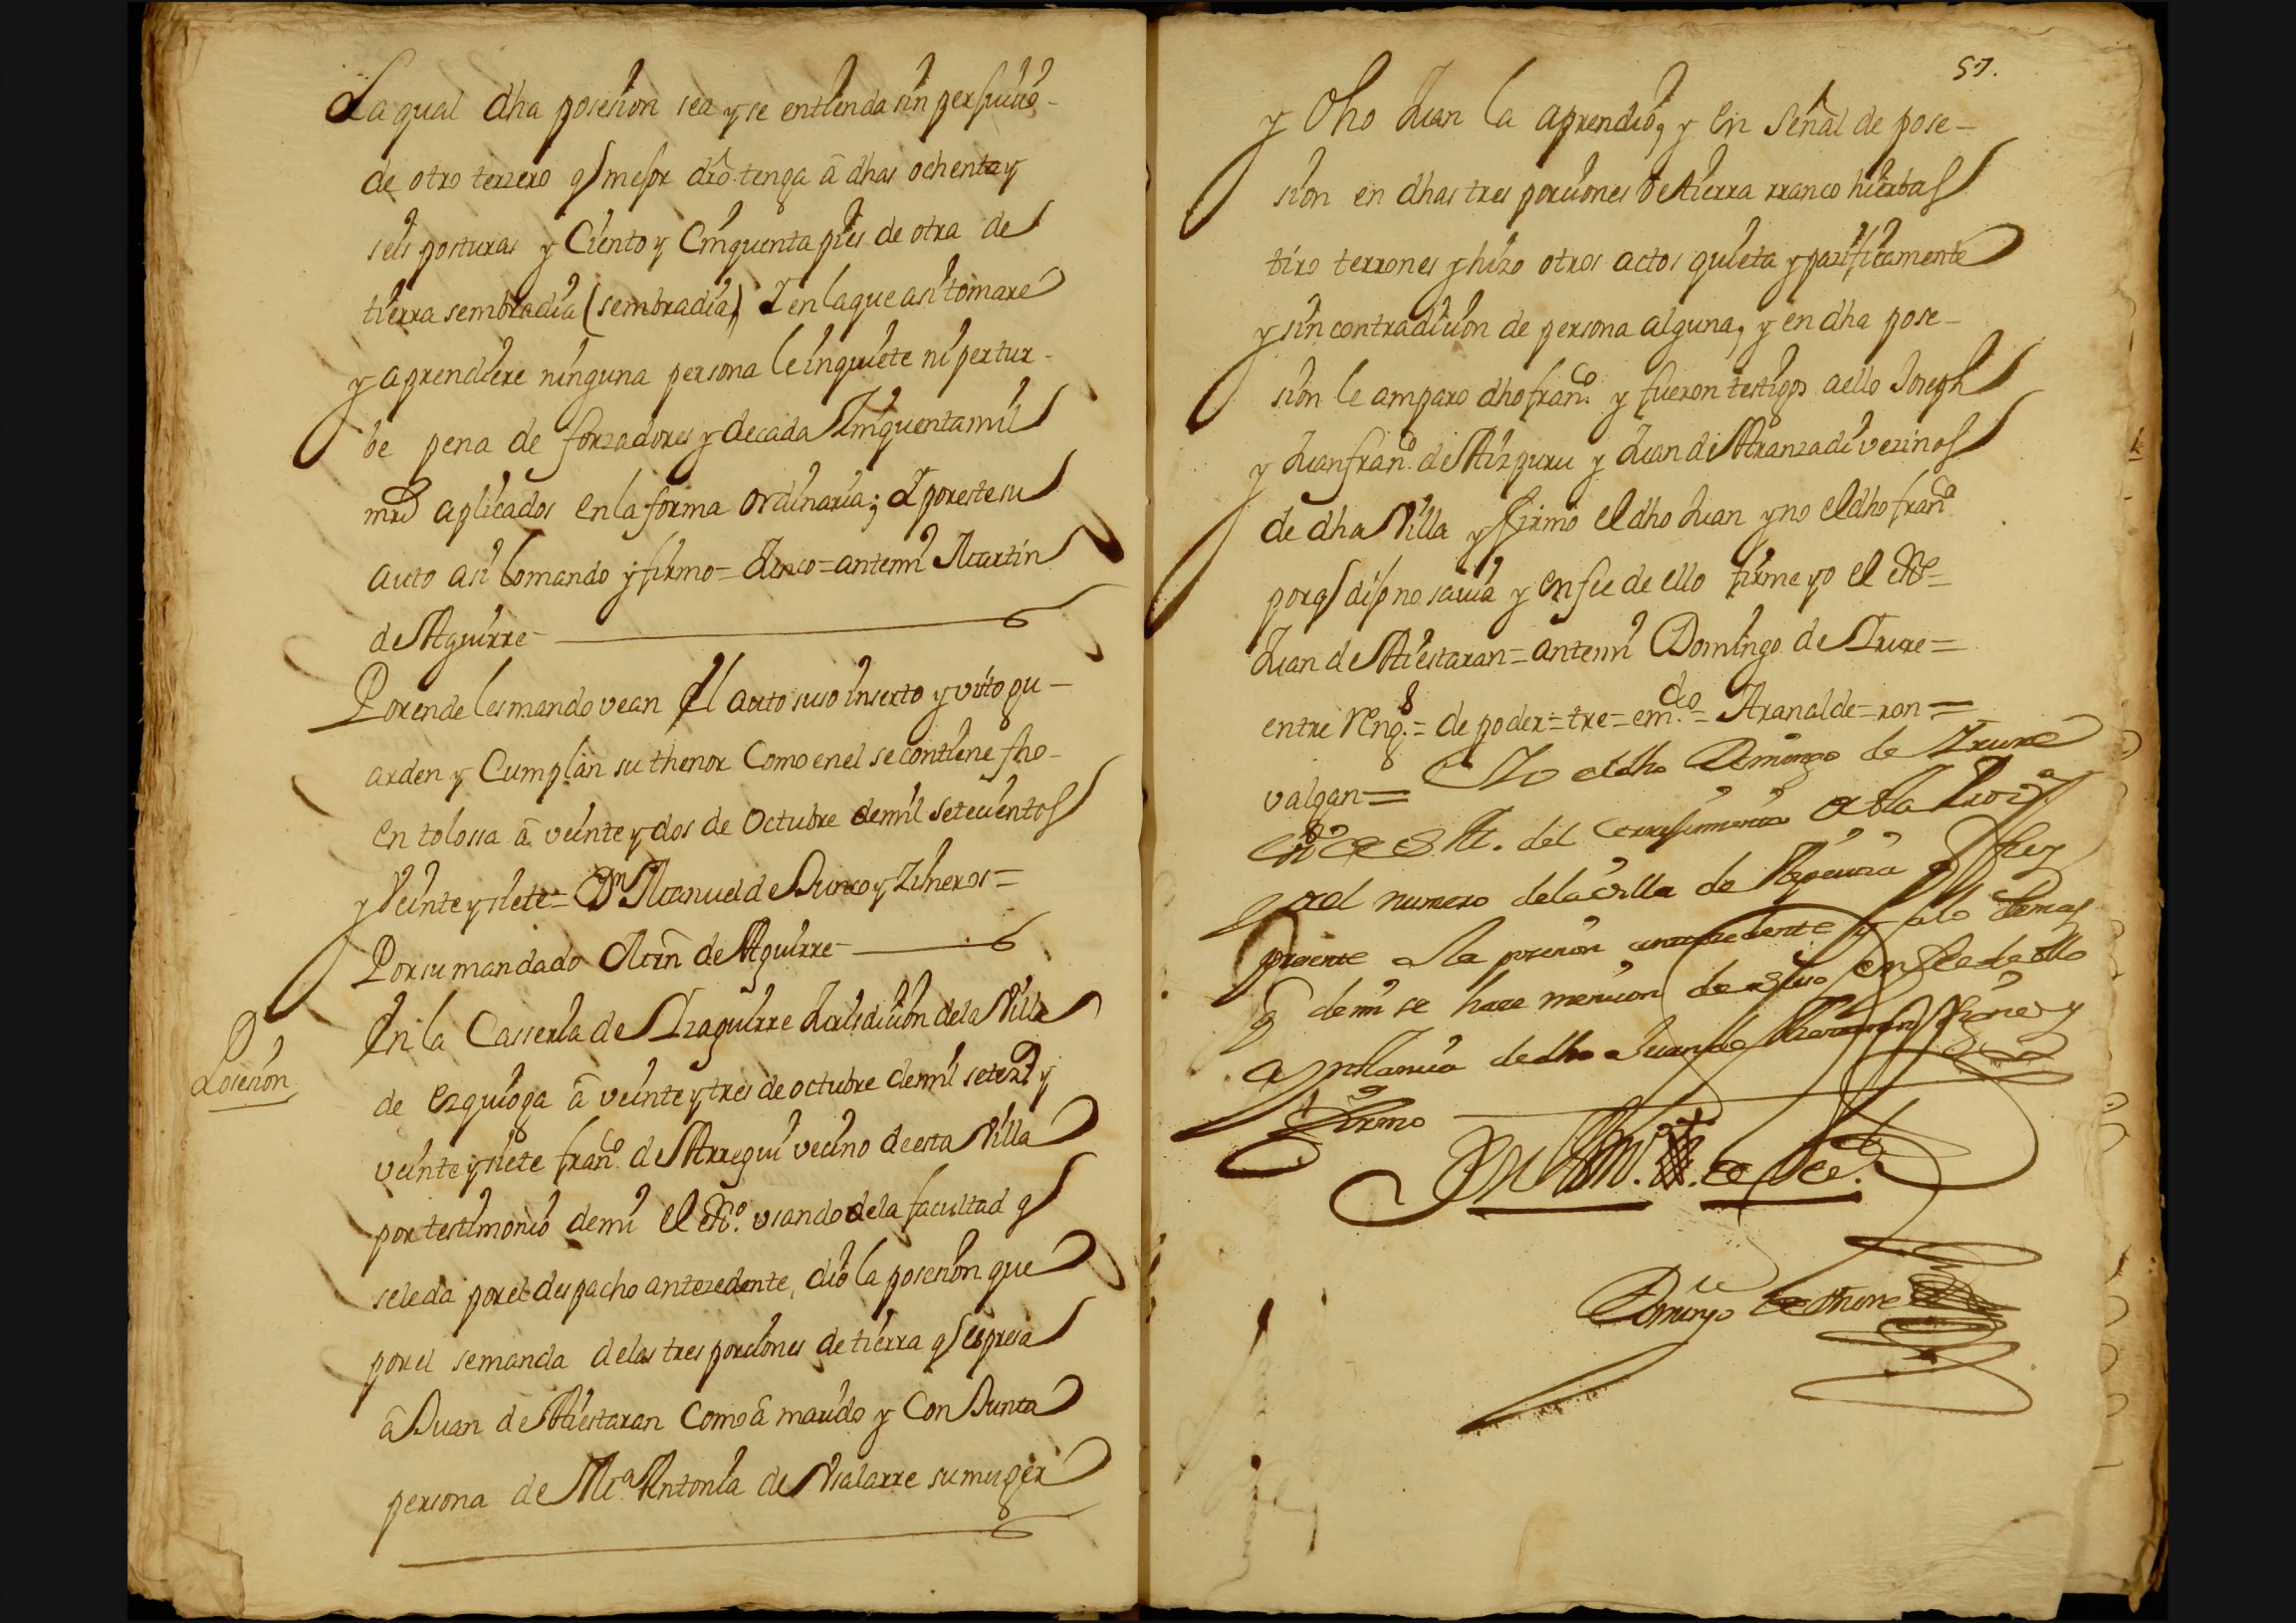 La qual dha posesion sea y se entienda sin perjuiçio
de otro terzero q mejor dro tenga â dhas ochenta y
seis posturas y Ciento y Cinquenta pies de otra de
tierra sembradia (sembradia) I en la que asi tomare
y aprendiere ninguna persona le inquiete ni pertur-
be pena de forzadores y de cada Zinquenta mil
mrs aplicados en la forma ordinaria; I por este su
auto asi lo mando y firmo = Junco = ante mi Martin
de Aguirre
Por ende les mando vean El auto suso inserto y visto gu-
arden y Cumplan su thenor Como en el se contiene fho
en tolossa â veinte y dos de Octubre de mil setecientos
y Veinte y siete = Dn Manuel de Junco y Zisneros =
Por su mandado Mrn de Aguirre
Posesion
En la Casseria de Izaguirre Jurisdicion de la Villa
de ezquioga â veinte y tres de octubre de mil setezs y
veinte y siete franco de Arregui vecino de esta Villa
por testimonio de mi el essno. usando de la facultad q
se le da por el despacho antezedente, dio la posesion que
por el se manda de las tres porciones de tierra q espresa
â Juan de Aiestaran Como â marido y Conjunta
persona de Ma. Antonia de Vsalarre su muger
57.
y dho Juan la aprendio, y en señal de pose-
sion en dhas tres porciones de tierra rranco hierbas
tiro terrones y hizo otros actos quieta y pazificamente
y sin contradicion de persona alguna, y en dha pose-
sion le amparo dho franco. y fueron testigos a ello Joseph
y Juan franco. de Aizpuru y Juan de Aranzadi vezinos
de dha Villa y firmo el dho Juan y no el dho franco
por q dijo no savia y en fee de ello firme yo el essno =
Juan de Aiestaran = ante mi Domingo de Irure =
entre Reng.s = de poder = tre = em.do = Aranalde = ron =
valgan = Yo el dho Domingo de Irure
essno de S. M. del Corregimiento de esta Prova
y del numero de la villa de Segura q fuy
presente a la posesion antezedente y a lo demas
q de mi se haze mencion de suso en fee de ello
a ynstancia de dho Juan de Aiestaran signe y
firmo
Domingo de Irure